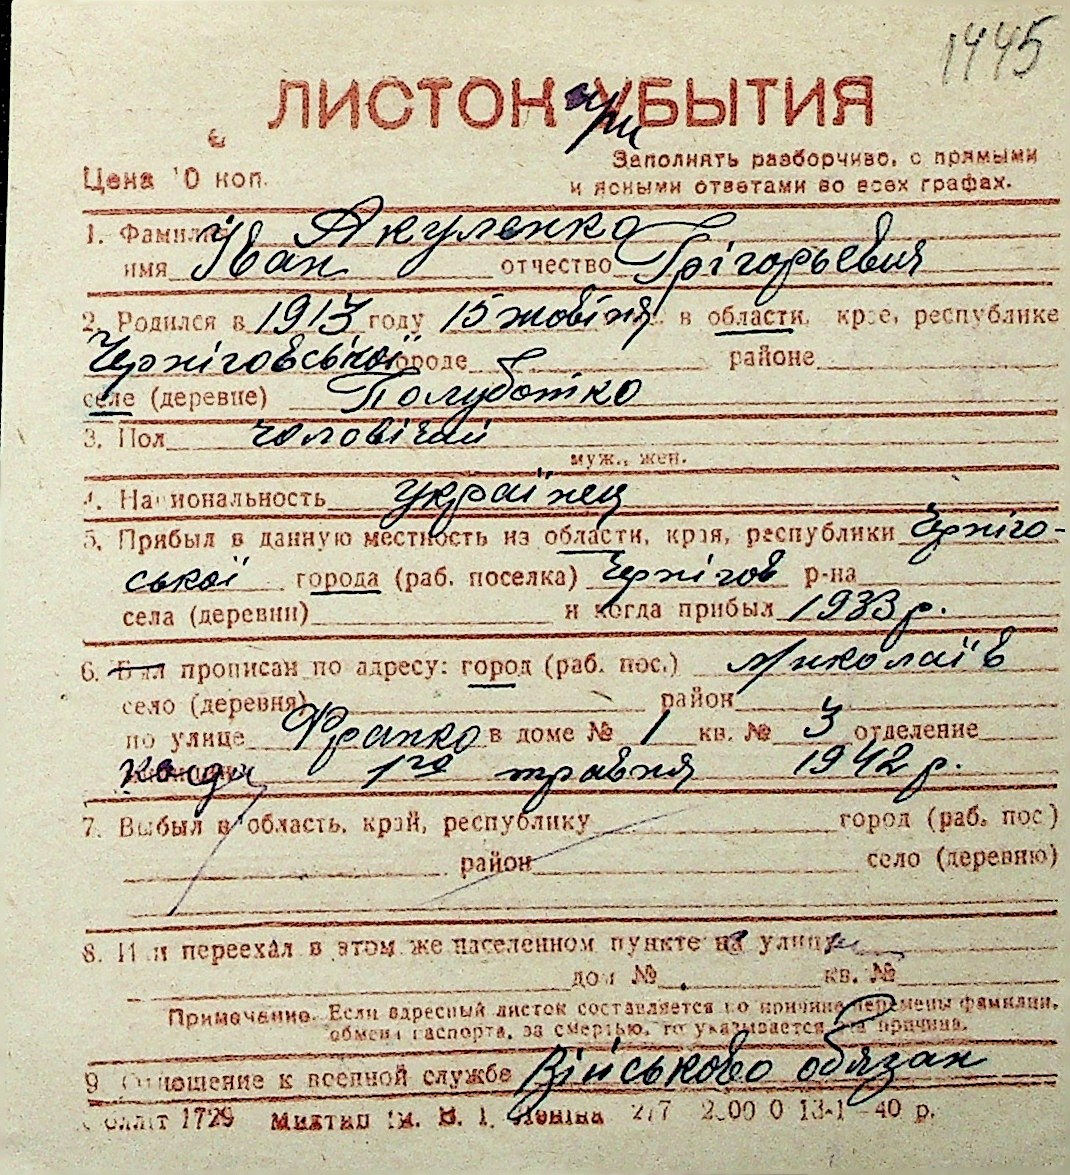 1445
ЛИСТОК при УБЫТИЯ
Цена 10 коп.
Заполнять разборчиво, с прямыми
и ясными ответами во всех графах.
1. Фамилия Якуленко
имя Іван отчество Грігорьевия
2. Родился в 1913 году 15 жовтня в области, крае, республике
Черніговської городе районе
селе (деревне) Полуботко
3. Пол чоловічий
муж., жен.
4. Национальность українец
5. Прибыл в данную местность из области, края, республики Черніго-
ської города (раб. поселка) Чернігов р-на
села (деревни) и когда прибыл 1933 р.
6. Был прописан по адресу: город (раб. пос.) Миколаїв
село (деревня) район
по улице Франко в доме № 1 кв. № 3 отделение
Когда 1го травня 1942 р.
7. Выбыл в область, край, республику город (раб. пос)
район село (деревню)
8. Или переехал в этом же населенном пункте на улицу
дом № кв. №
Примечание. Если адресный листок составляется по причине перемены фамилии,
обмена паспорта, за смертью, то указывается эта причина.
9. Отношение к военной службе Військово обязан
1729 Миктип ім. В. І. Леніна 277 13-1-40 р.